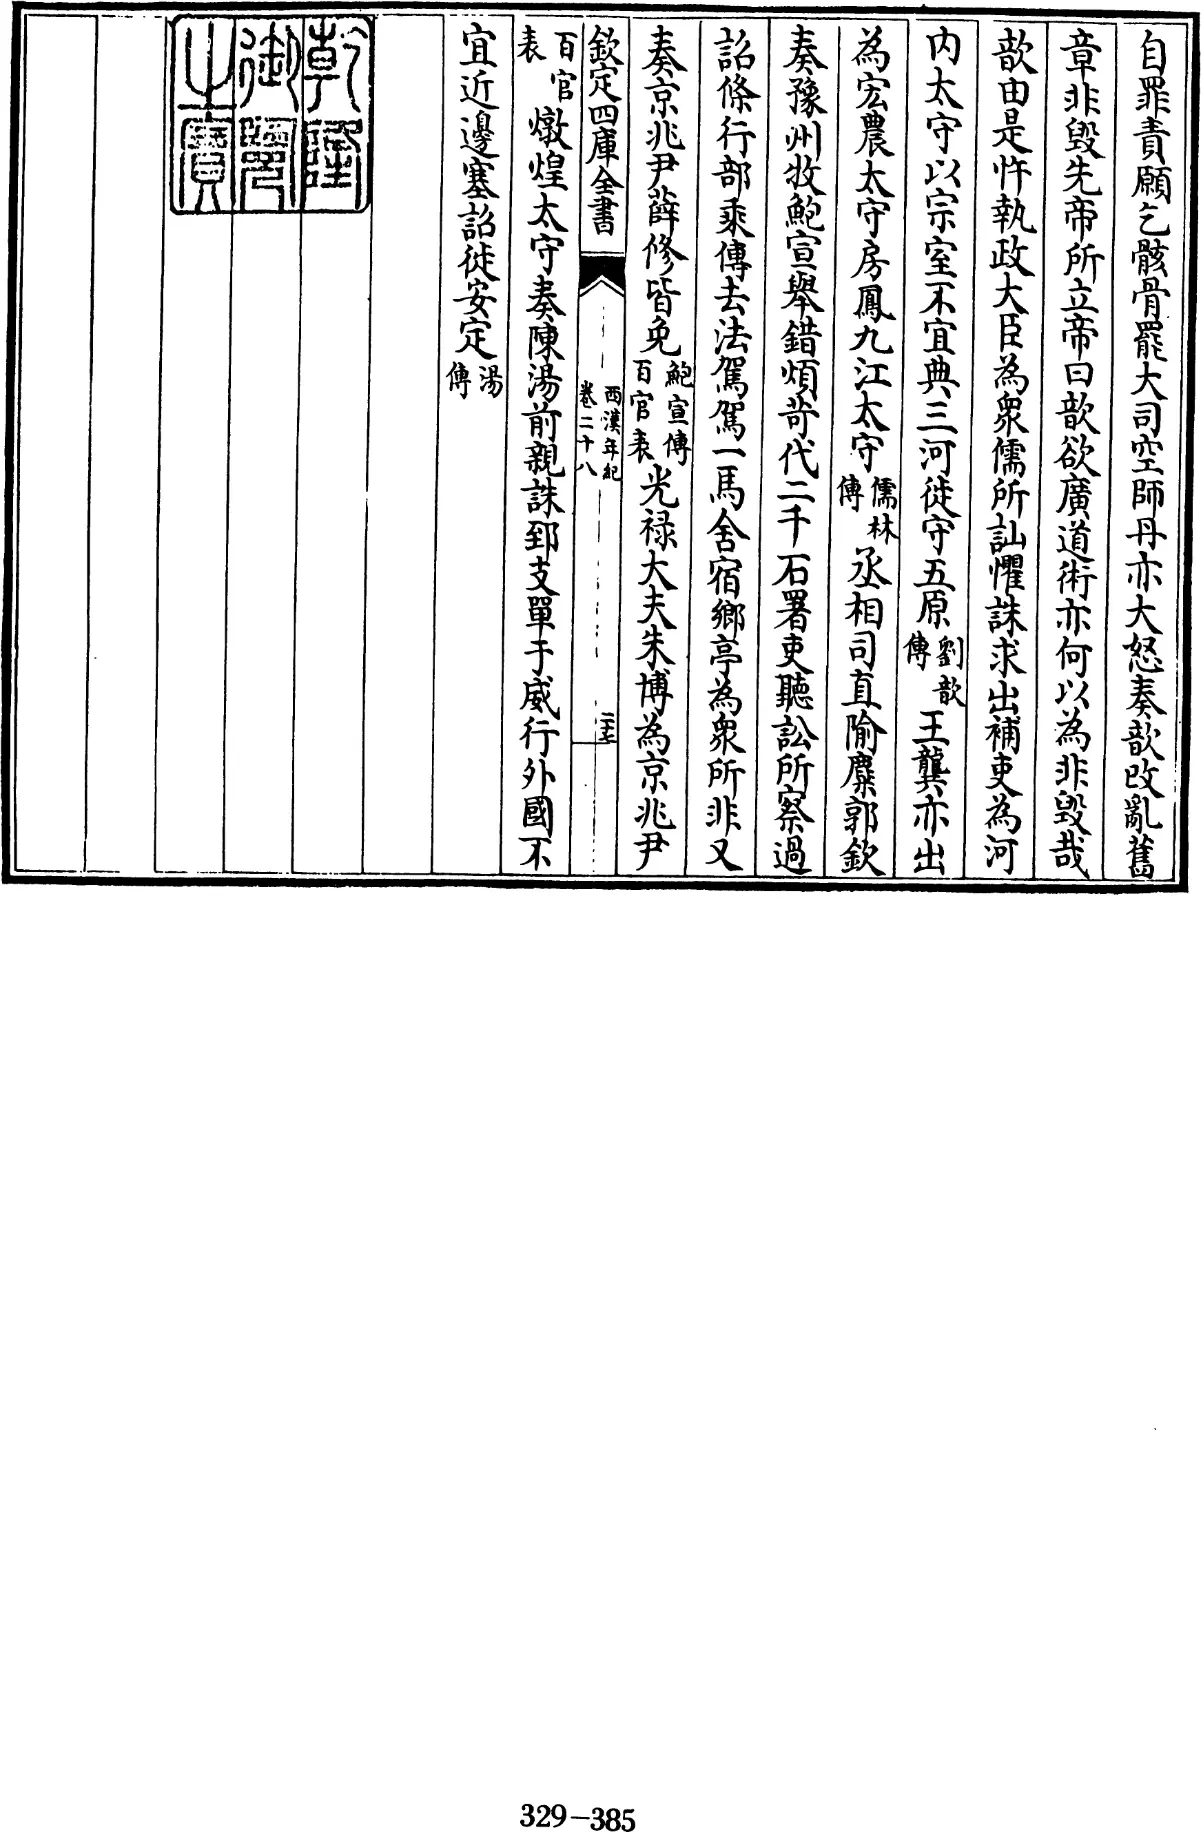 自罪責願乞骸骨罷大司空師丹亦大怒奏歆改亂舊
章非毀先帝所立帝曰歆欲廣道術亦何以為非毀哉
歆由是忤執政大臣為衆儒所訕懼誅求出補吏為河
内太守以宗室不宜典三河徙守五原劉歆傳王龔亦出
為宏農太守房鳳九江太守儒林傳丞相司直隃麋郭欽
奏豫州牧鮑宣舉錯煩苛代二千石署吏聽訟所察過
詔條行部乘傳去法駕駕一馬舍宿鄉亭為衆所非又
奏京兆尹薛修皆免鮑宣傳百官表光禄大夫朱博為京兆尹
欽定四庫全書
西漢年紀
卷二十八
二十七
百官表燉煌太守奏陳湯前親誅郅支單于威行外國不
宜近邊塞詔徙安定湯傳
乾隆御覽之寶
329-385